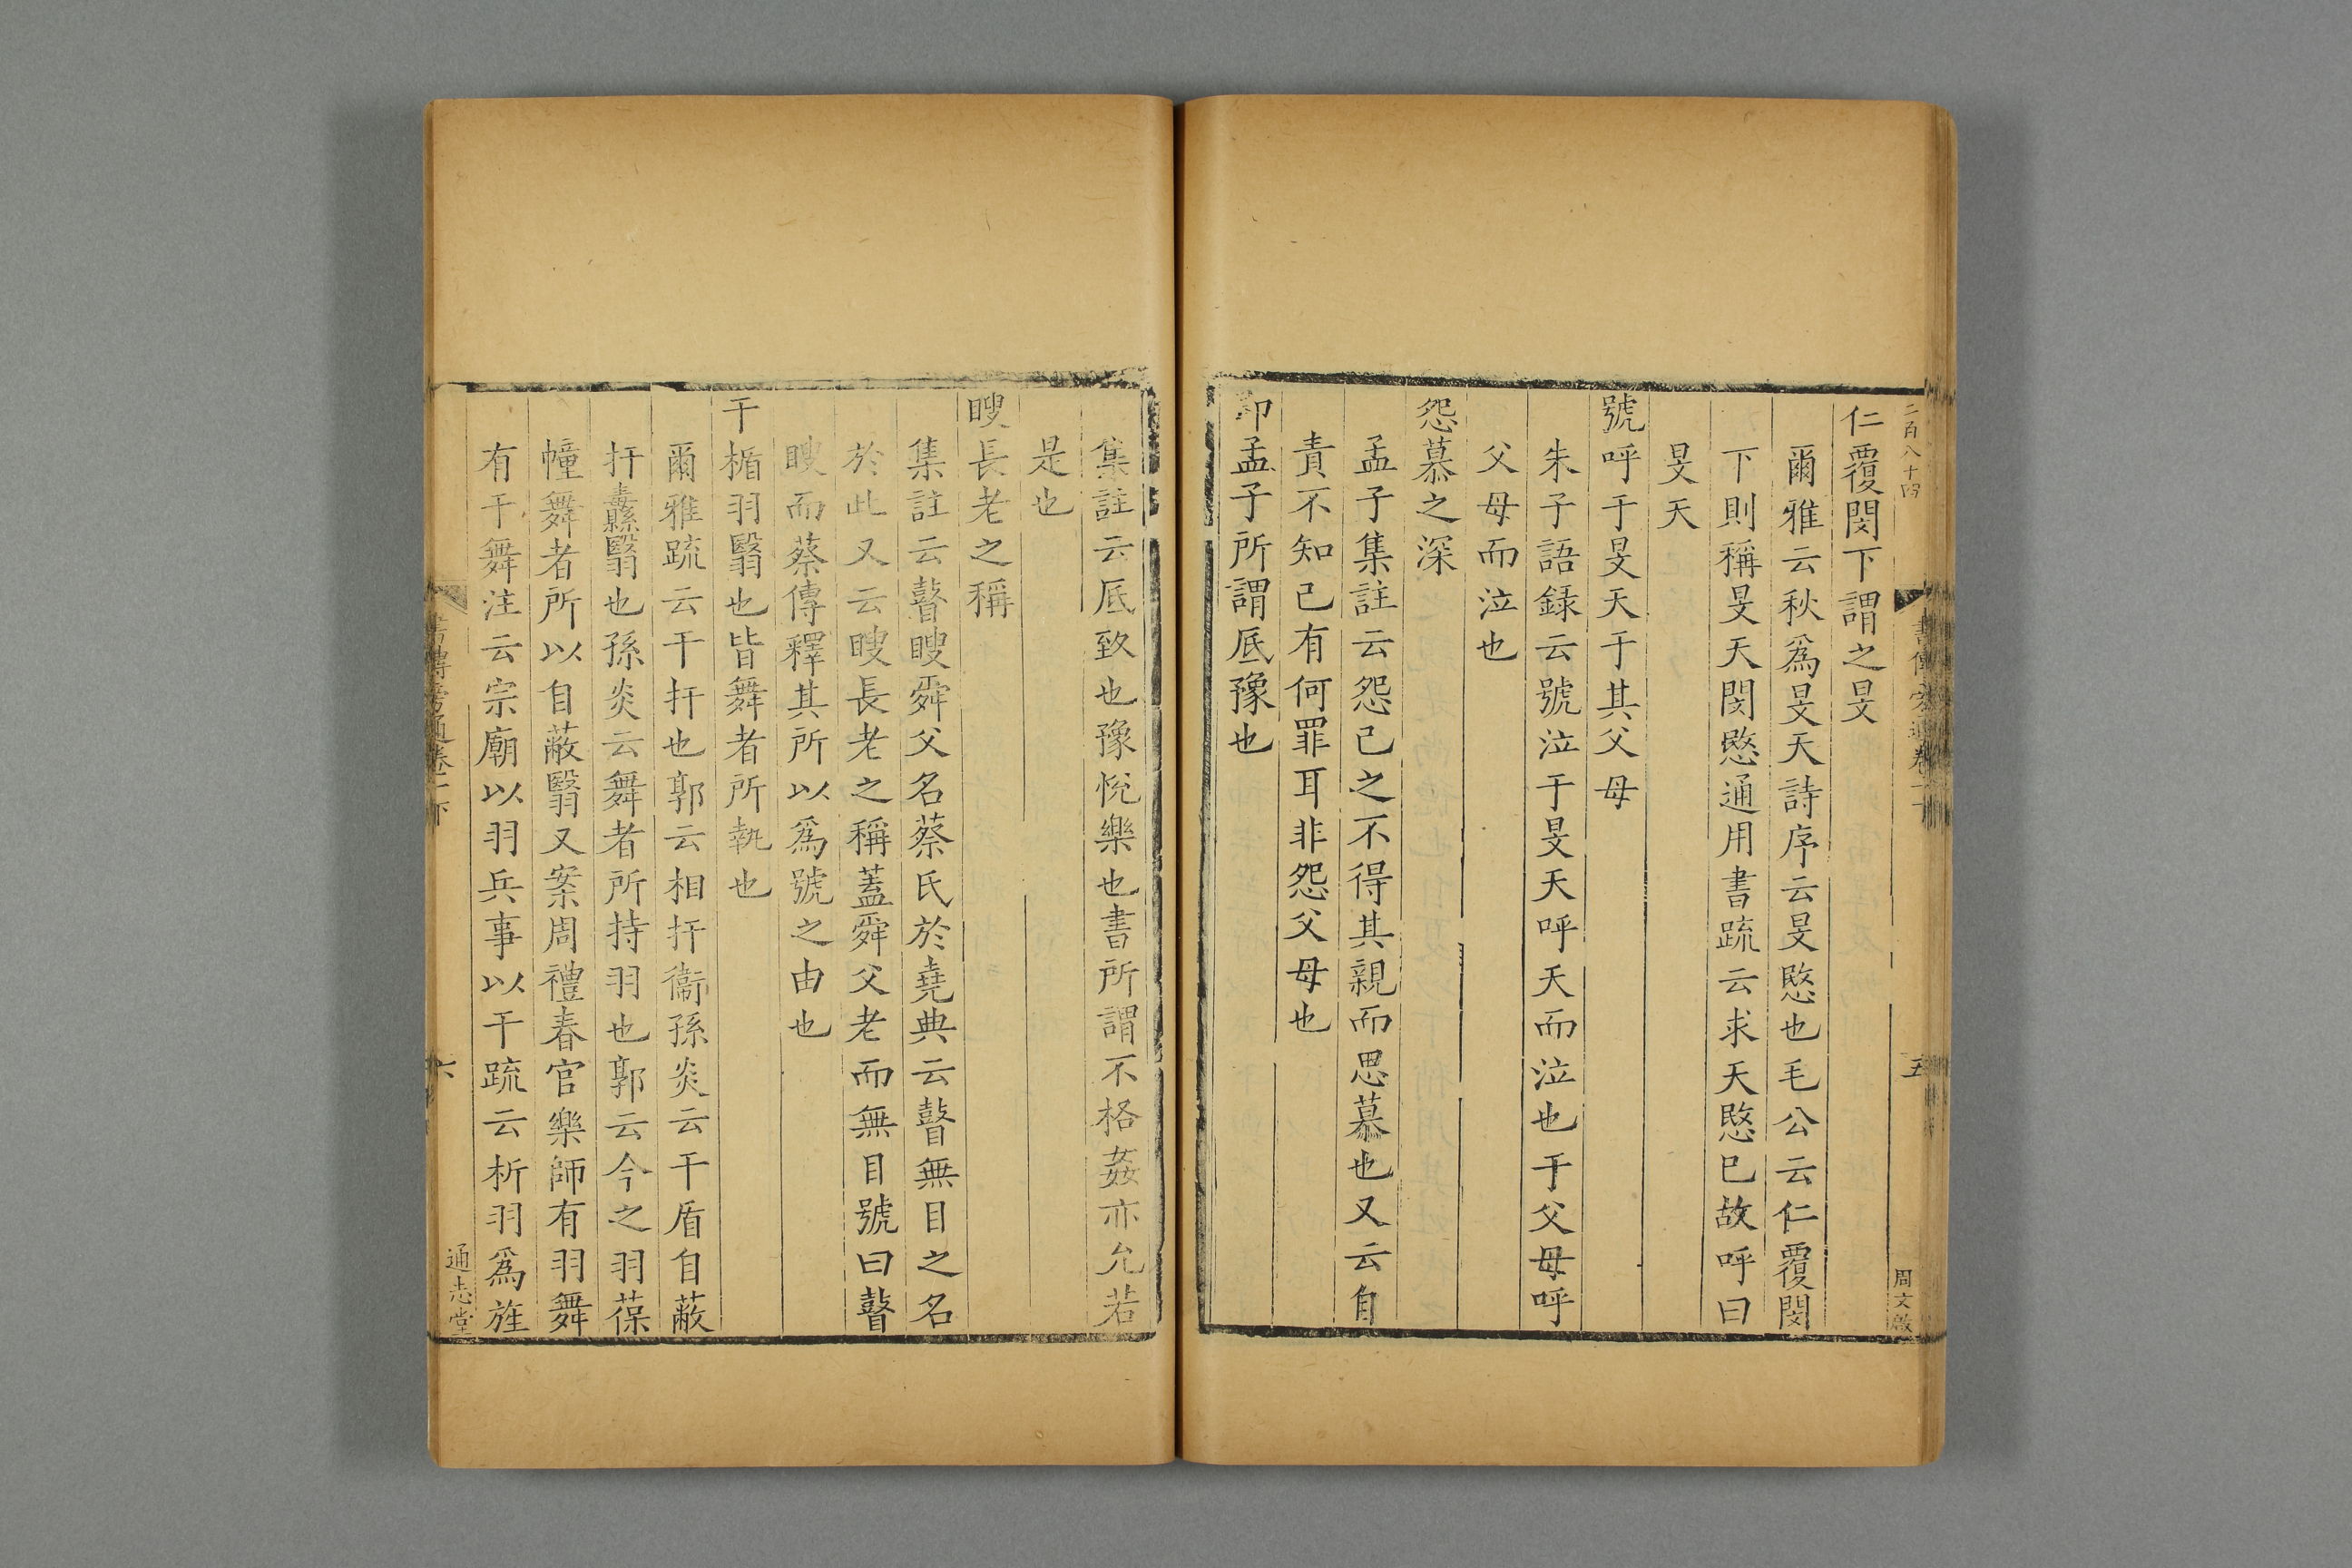 二百八十四
書傳旁通卷一下
五
周文啟
仁覆閔下謂之旻
爾雅云秋爲旻天詩序云旻愍也毛公云仁覆閔
下則稱旻天閔愍通用書疏云求天愍已故呼曰
旻天
號呼于旻天于其父母
朱子語録云號泣于旻天呼天而泣也于父母呼
父母而泣也
怨慕之深
孟子集註云怨已之不得其親而思慕也又云自
責不知已有何罪耳非怨父母也
卽孟子所謂厎豫也
集註云厎致也豫悅樂也書所謂不格姦亦允若
是也
瞍長老之稱
集註云瞽瞍舜父名蔡氏於堯典云瞽無目之名
於此又云瞍長老之稱蓋舜父老而無目號曰瞽
瞍而蔡傳釋其所以爲號之由也
干楯羽翳也皆舞者所執也
爾雅疏云干扞也郭云相扞衞孫炎云干盾自蔽
扞纛翳也孫炎云舞者所持羽也郭云今之羽葆
幢舞者所以自蔽翳又案周禮春官樂師有羽舞
有干舞注云宗廟以羽兵事以干疏云析羽爲旌
書傳旁通卷一下
六
通志堂